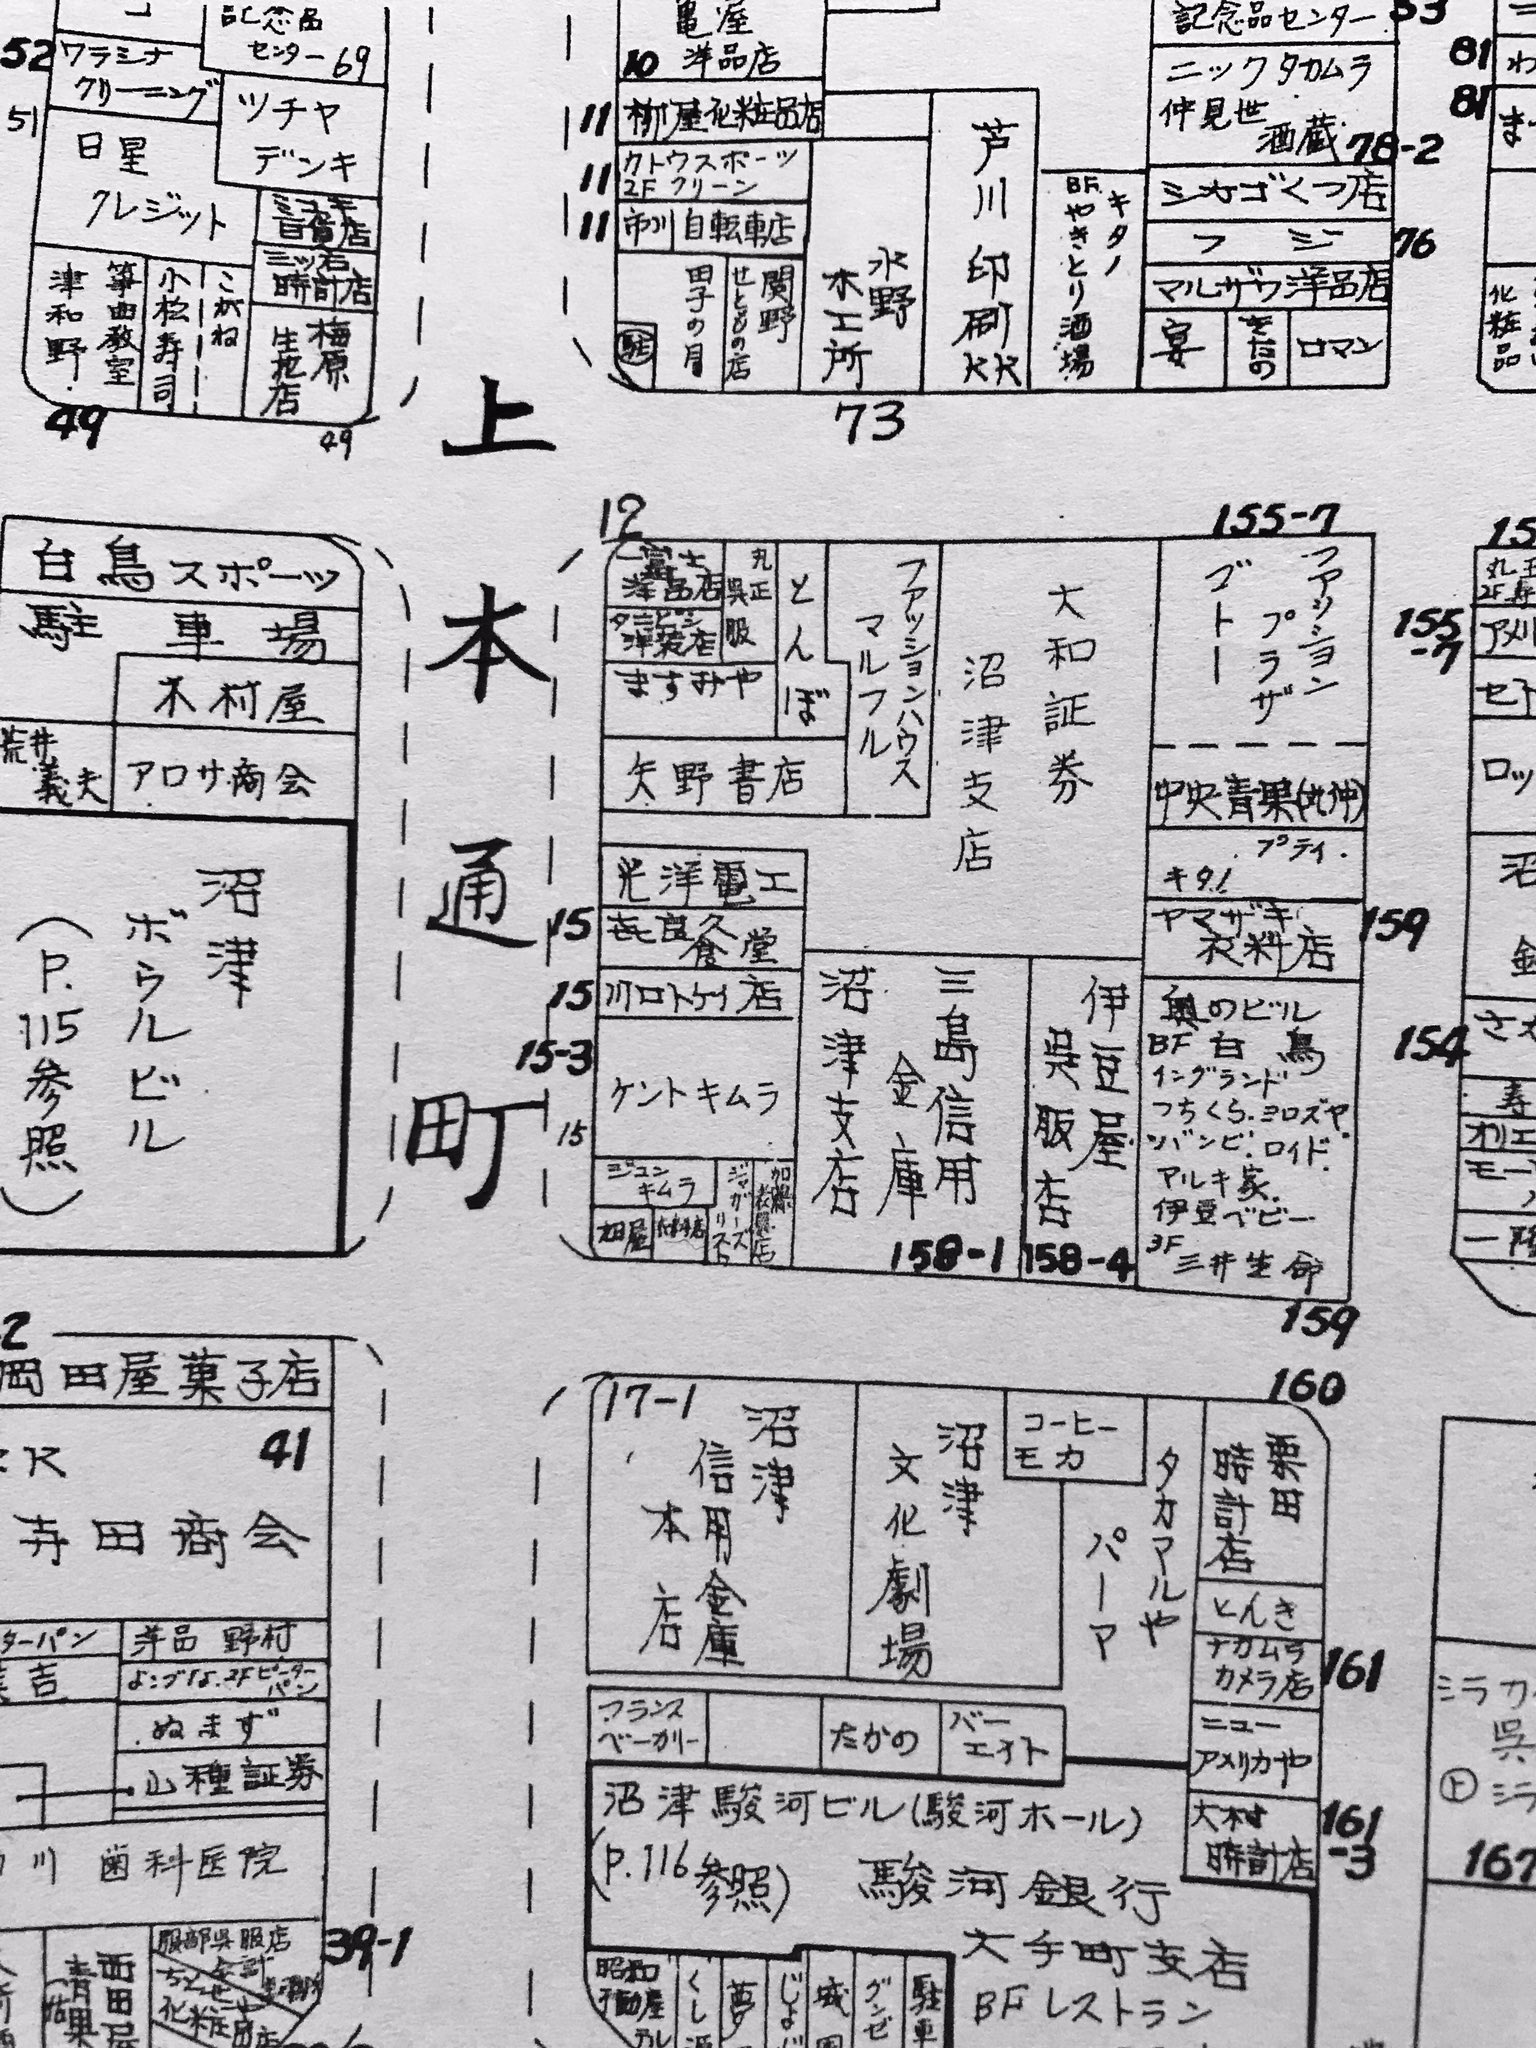 記念品
センター 69
52
ワラシナ
クリーニング
51
日星
クレジット
ツチヤ
デンキ
三ツ石
時計店
津和野
箏曲教室
小松寿司
こがね
梅原
生花店
49
49
亀屋
洋品店
10
11
柳屋化粧品店
11
カトウスポーツ
2F クリーン
11
市川
自転車店
駐
田子の月
関野
せともの店
水野
木工所
芦川印刷KK
73
キタノ
BF.やきとり酒場
記念品センター
53
ニックタカムラ
仲見世
酒蔵
78-2
シカゴくつ店
フジ
76
マルザワ洋品店
宴
そたの
ロマン
81
わ
81
ま
化粧品
上本通町
白鳥スポーツ
駐車場
木村屋
荒井
義夫
アロサ商会
沼津
ボウルビル
(P.115参照)
12
一富士
洋品店
丸正
呉服
とんぼ
ますみや
ファッションハウス
マルフル
矢野書店
大和証券
沼津支店
155-7
ファッション
プラザ
ゴトー
中央青果(丸仲)
プライ.
キタノ
ヤマザキ
衣料店
159
光洋電工
15
㐂良久
食堂
15
川口トケイ店
15-3
ケントキムラ
15
ジュン
キムラ
ジャガーズ
三島信用
金庫
沼津支店
158-1
伊豆屋
呉服店
158-4
奥のビル
BF 白鳥
イングランド
つちくら.ヨロズヤ
ツバンビ.ロイド.
アルキ家.
伊豆ベビー
3F
三井生命
159
15
155
-7
セト
ロッ
沼
154
さ
寿
モー
一
2
岡田屋菓子店
41
寺田商会
ターパン
洋品 野村
吉
ぬまず
山種証券
川歯科医院
39-1
服部呉服店
西田屋
青果
17-1
沼津
信用金庫
本店
沼津
文化劇場
コーヒー
モカ
タカマルや
パーマ
160
栗田
時計店
とんき
ナカムラ
カメラ店
161
ニュー
アメリカや
大村
時計店
161
-3
フランス
ベーカリー
たかの
バー
エイト
沼津駿河ビル(駿河ホール)
(P.116参照)
駿河銀行
大手町支店
BF レストラン
昭和
不動屋
くし源
夢
じょ
城
グンゼ
駐車
シラカ
呉
上
シラ
167